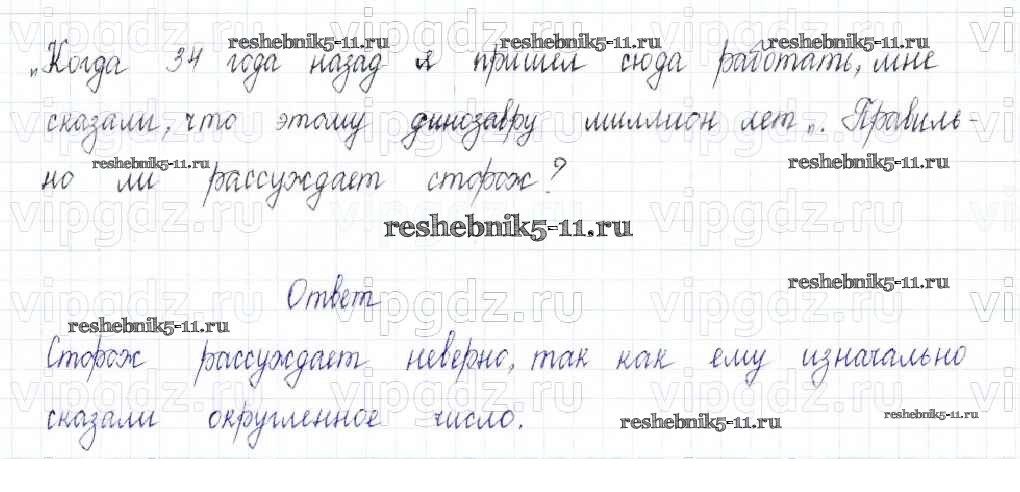 „Когда 34 года назад я пришел сюда работать, мне
сказали, что этому динозавру миллион лет„. Правиль-
но ли рассуждает сторож?
reshebnik5-11.ru
Ответ
Сторож рассуждает неверно, так как ему изначально
сказали округленное число.